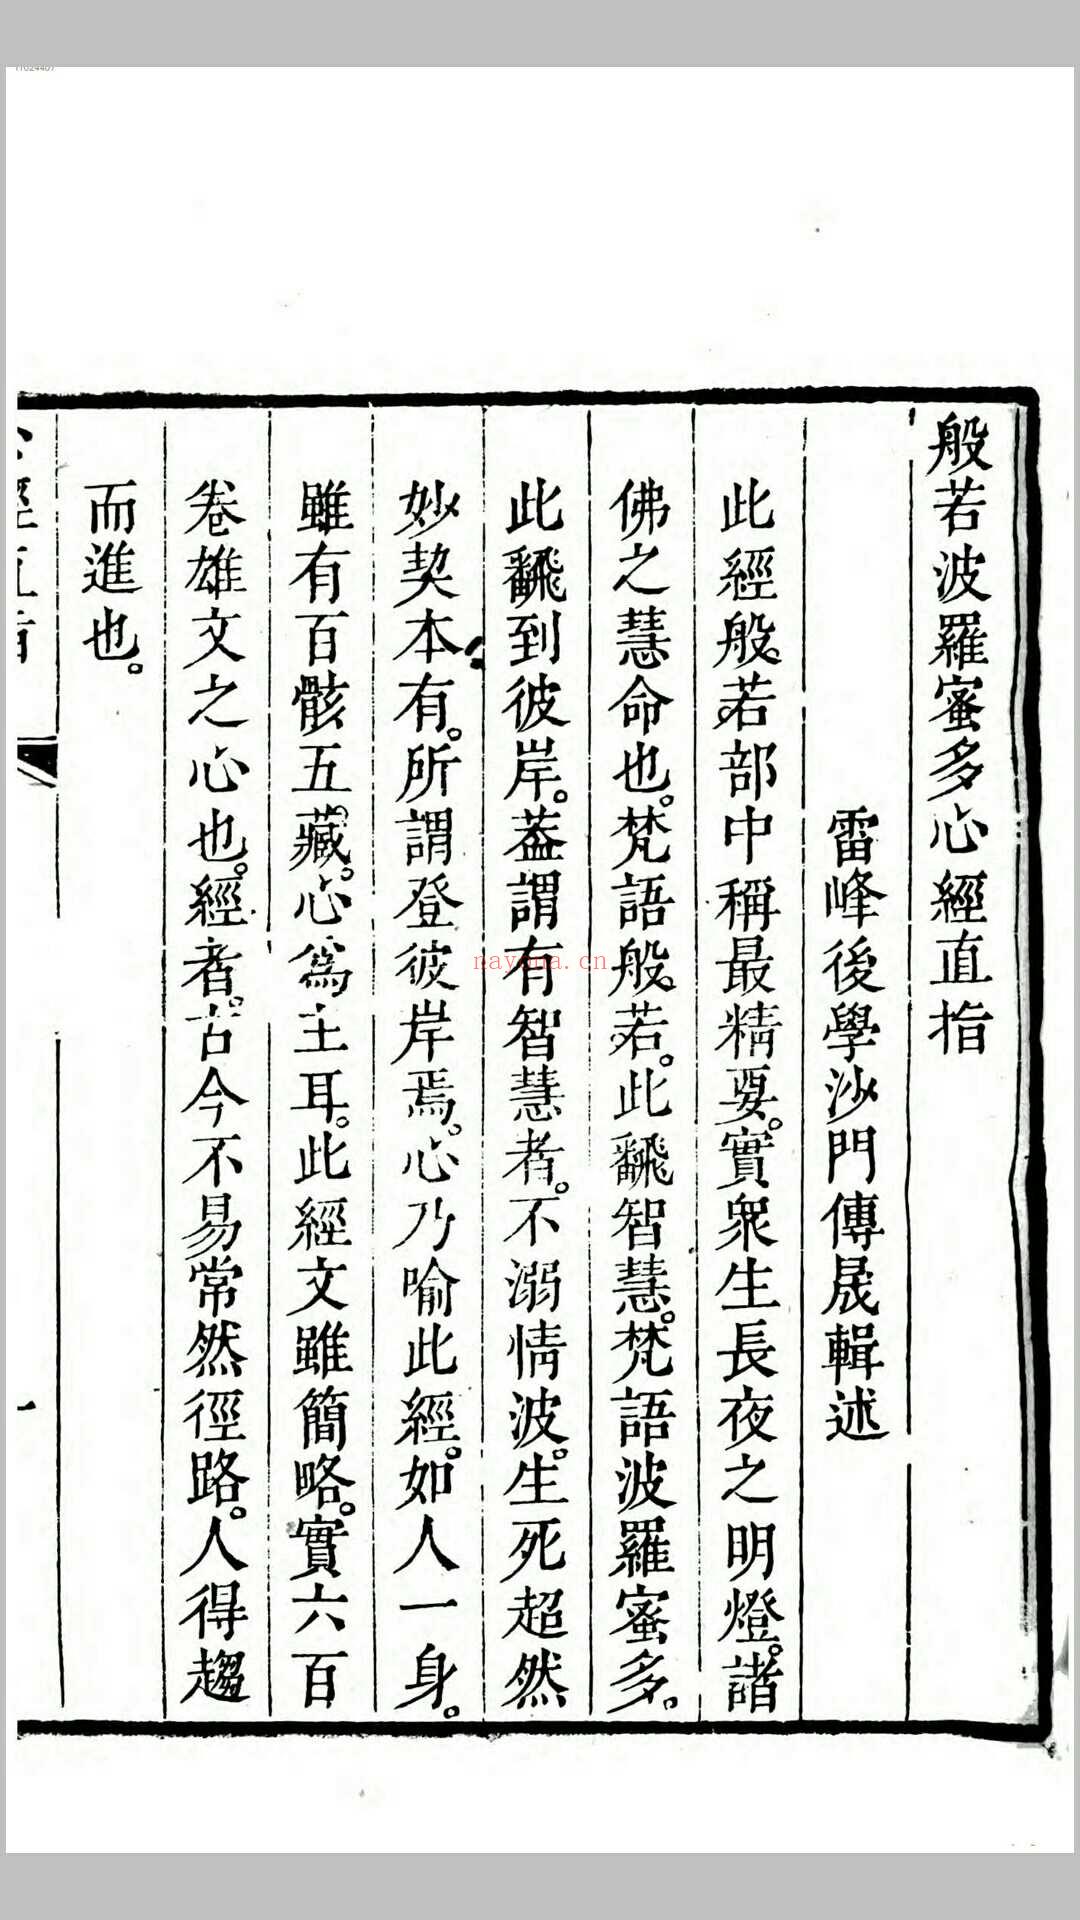 般若波羅蜜多心經直指
雷峰後學沙門傳晟輯述
此經般若部中稱最精要。實衆生長夜之明燈。諸
佛之慧命也。梵語般若。此飜智慧。梵語波羅蜜多。
此飜到彼岸。葢謂有智慧者。不溺情波。生死超然
妙契本有。所謂登彼岸焉。心乃喻此經。如人一身。
雖有百骸五藏。心爲主耳。此經文雖簡略。實六百
卷雄文之心也。經者。古今不易常然徑路。人得趨
而進也。
nayona.cn
11024407